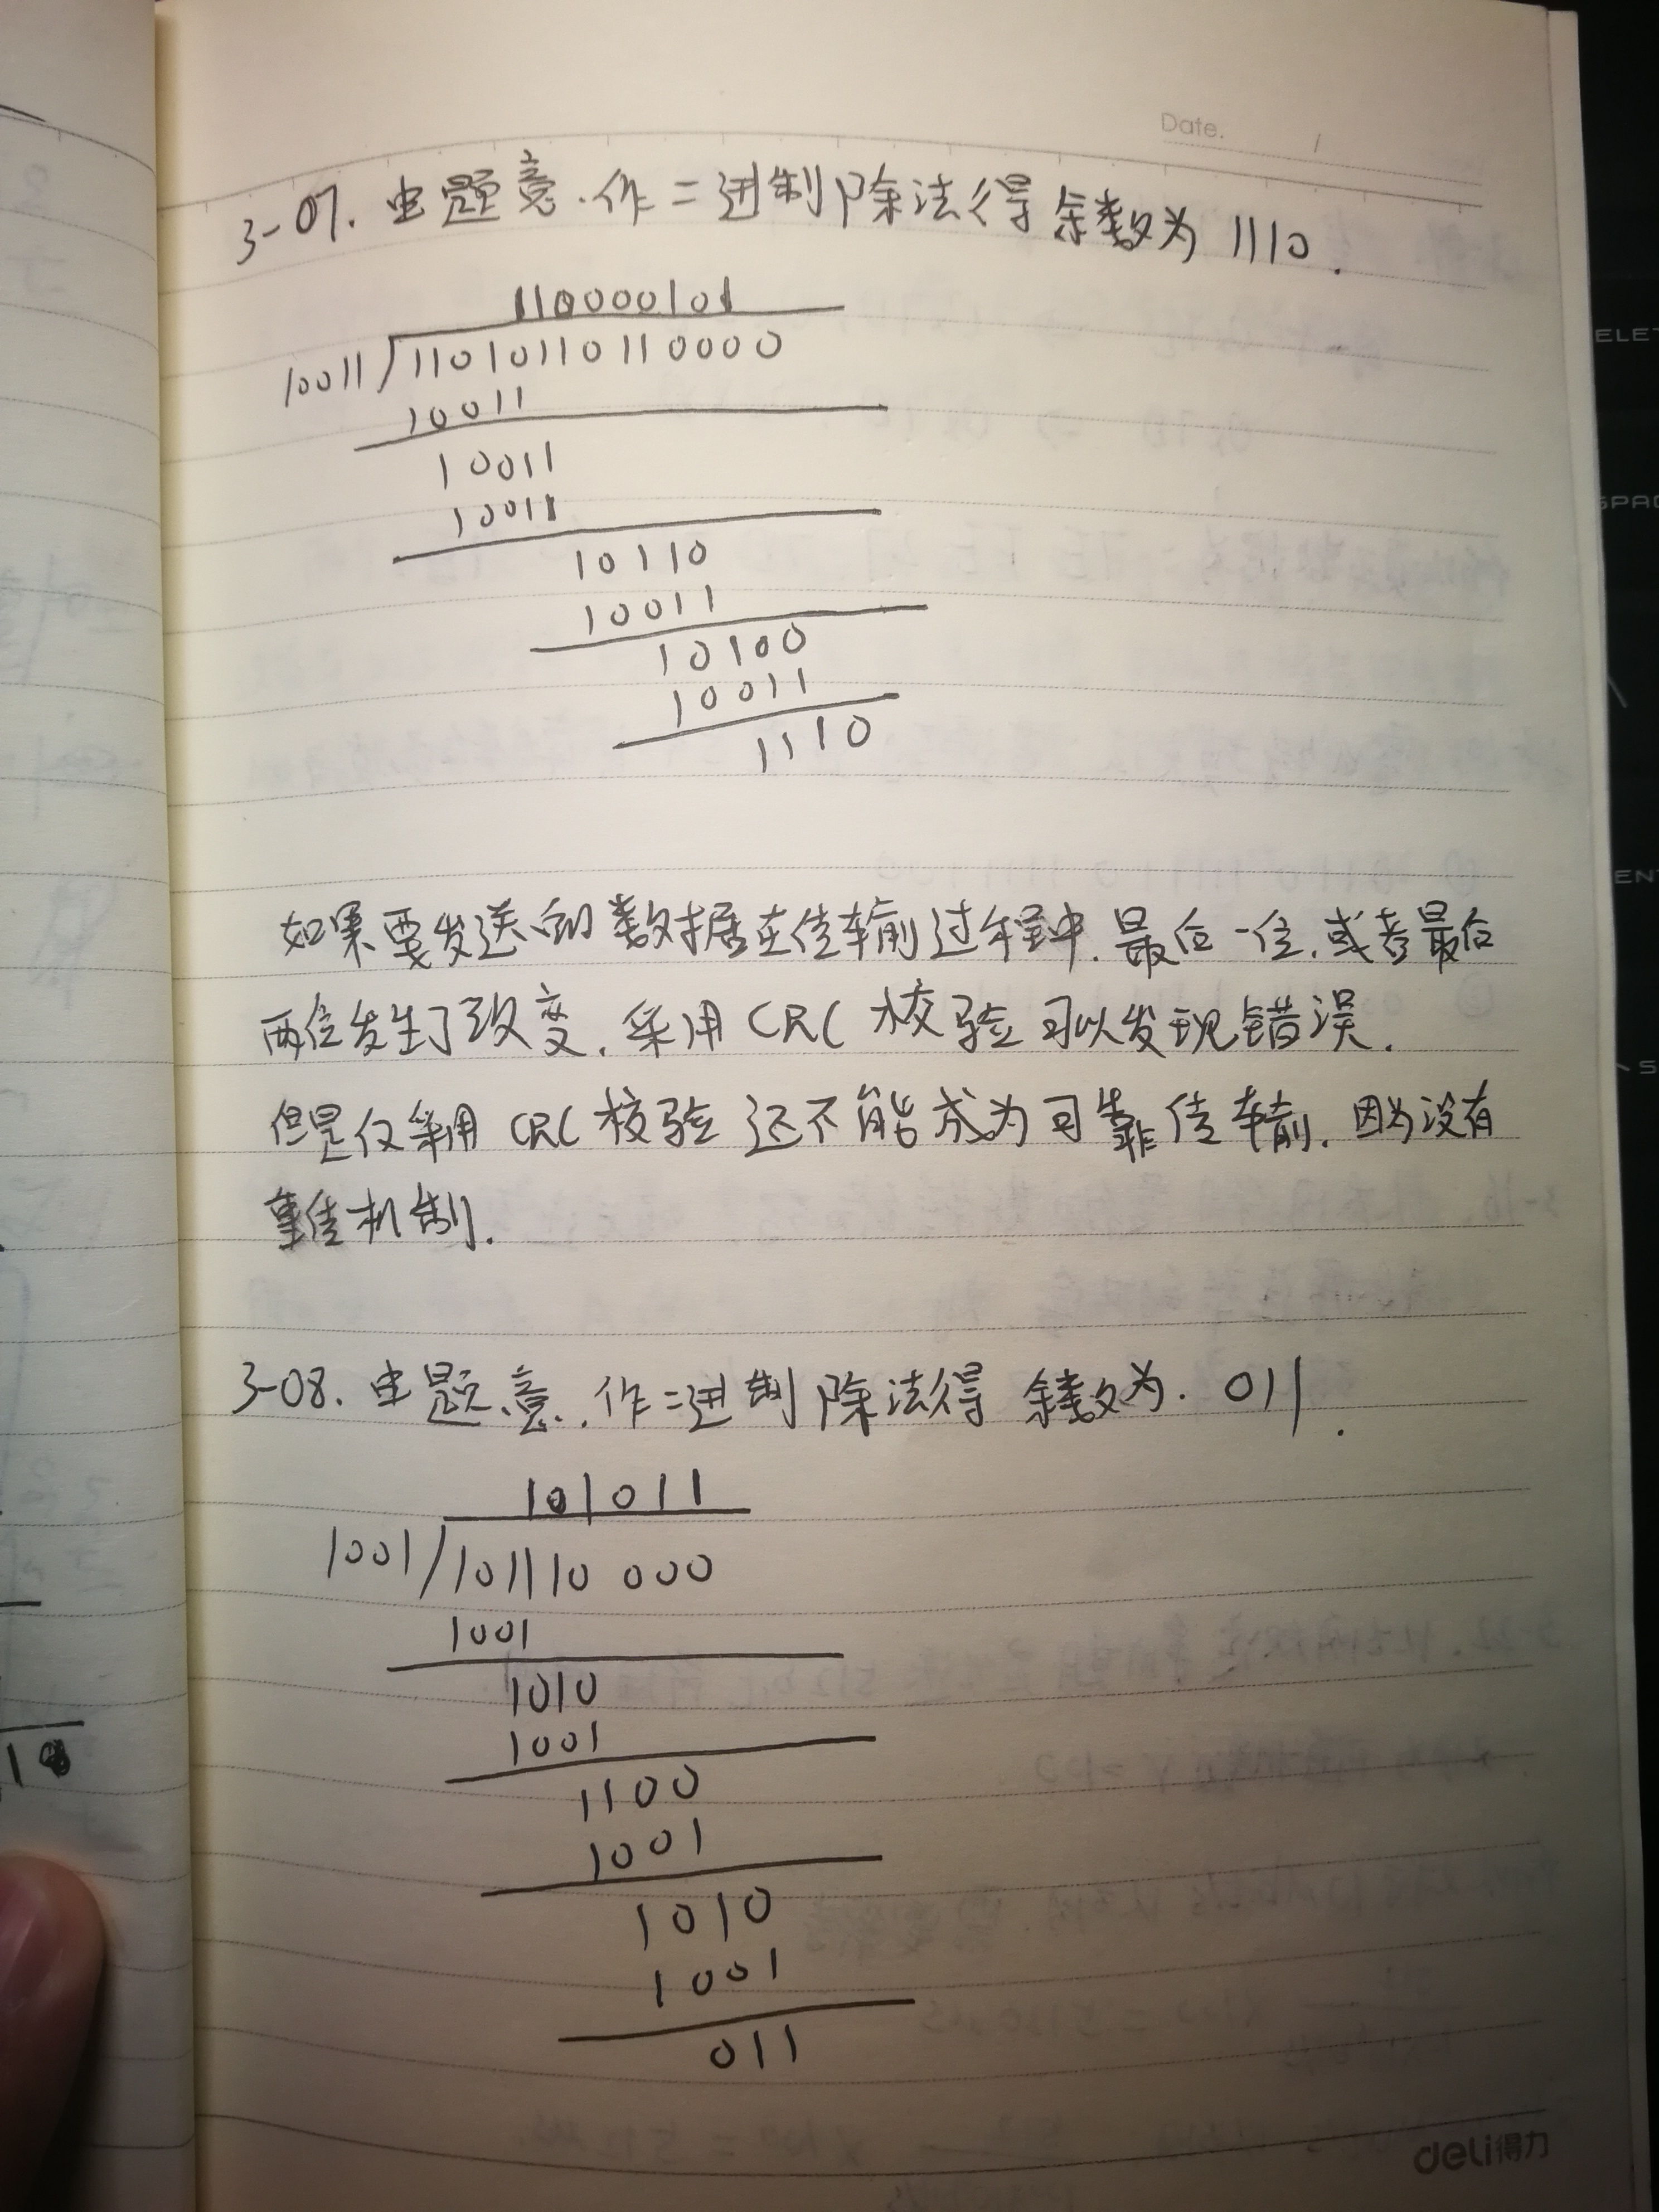 Date.
3-07. 由题意.作二进制除法得余数为 1110.
110000101
10011 11010110110000
10011
10011
10011
10110
10011
10100
10011
1110
如果要发送的数据在传输过程中.最后一位.或者最后
两位发生了改变.采用CRC校验可以发现错误.
但是仅采用CRC校验还不能成为可靠传输.因为没有
重传机制.
3-08. 由题意.作二进制除法得 余数为. 011.
101011
1001 101110 000
1001
1010
1001
1100
1001
1010
1001
011
deli得力